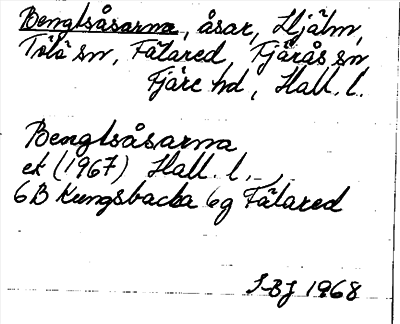 Benglsåsarna, åsar, Hjälm,
Tölö sn, Fälared, Fjärås sn
Fjäre hd, Hall. l.
Benglsåsarna
ek (1967) Hall. l.
6B Kungsbacka 6g Fälared
S-BJ 1968